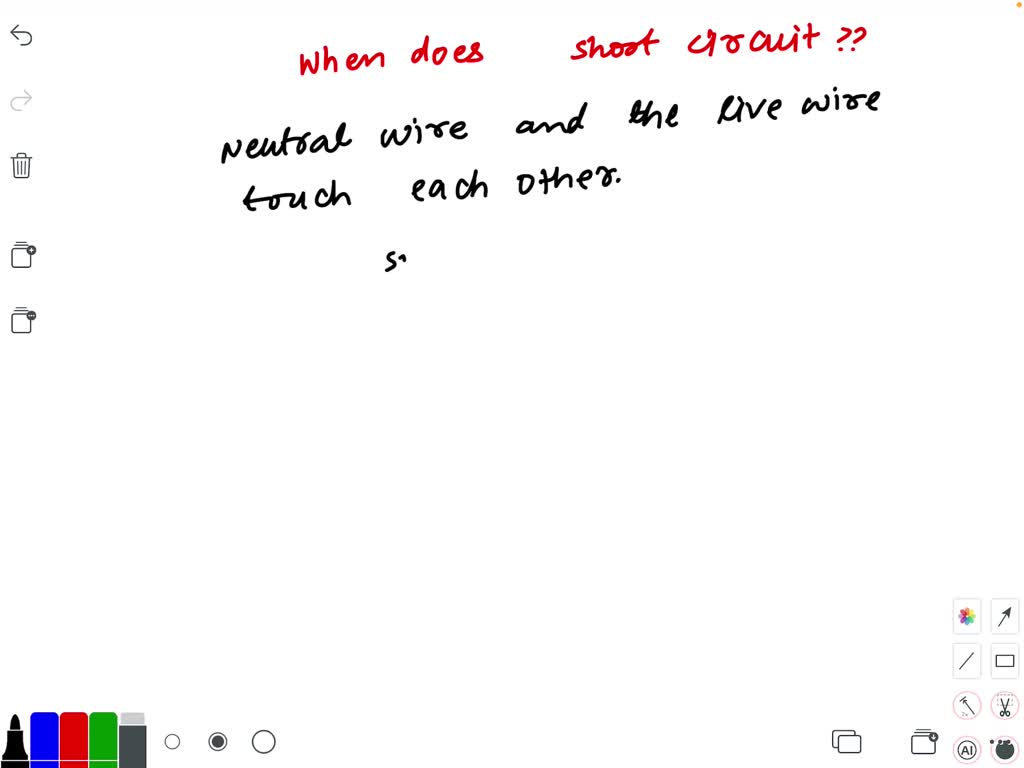 When does short circuit ??
Neutral wire and the live wire
touch each other.
s
AI